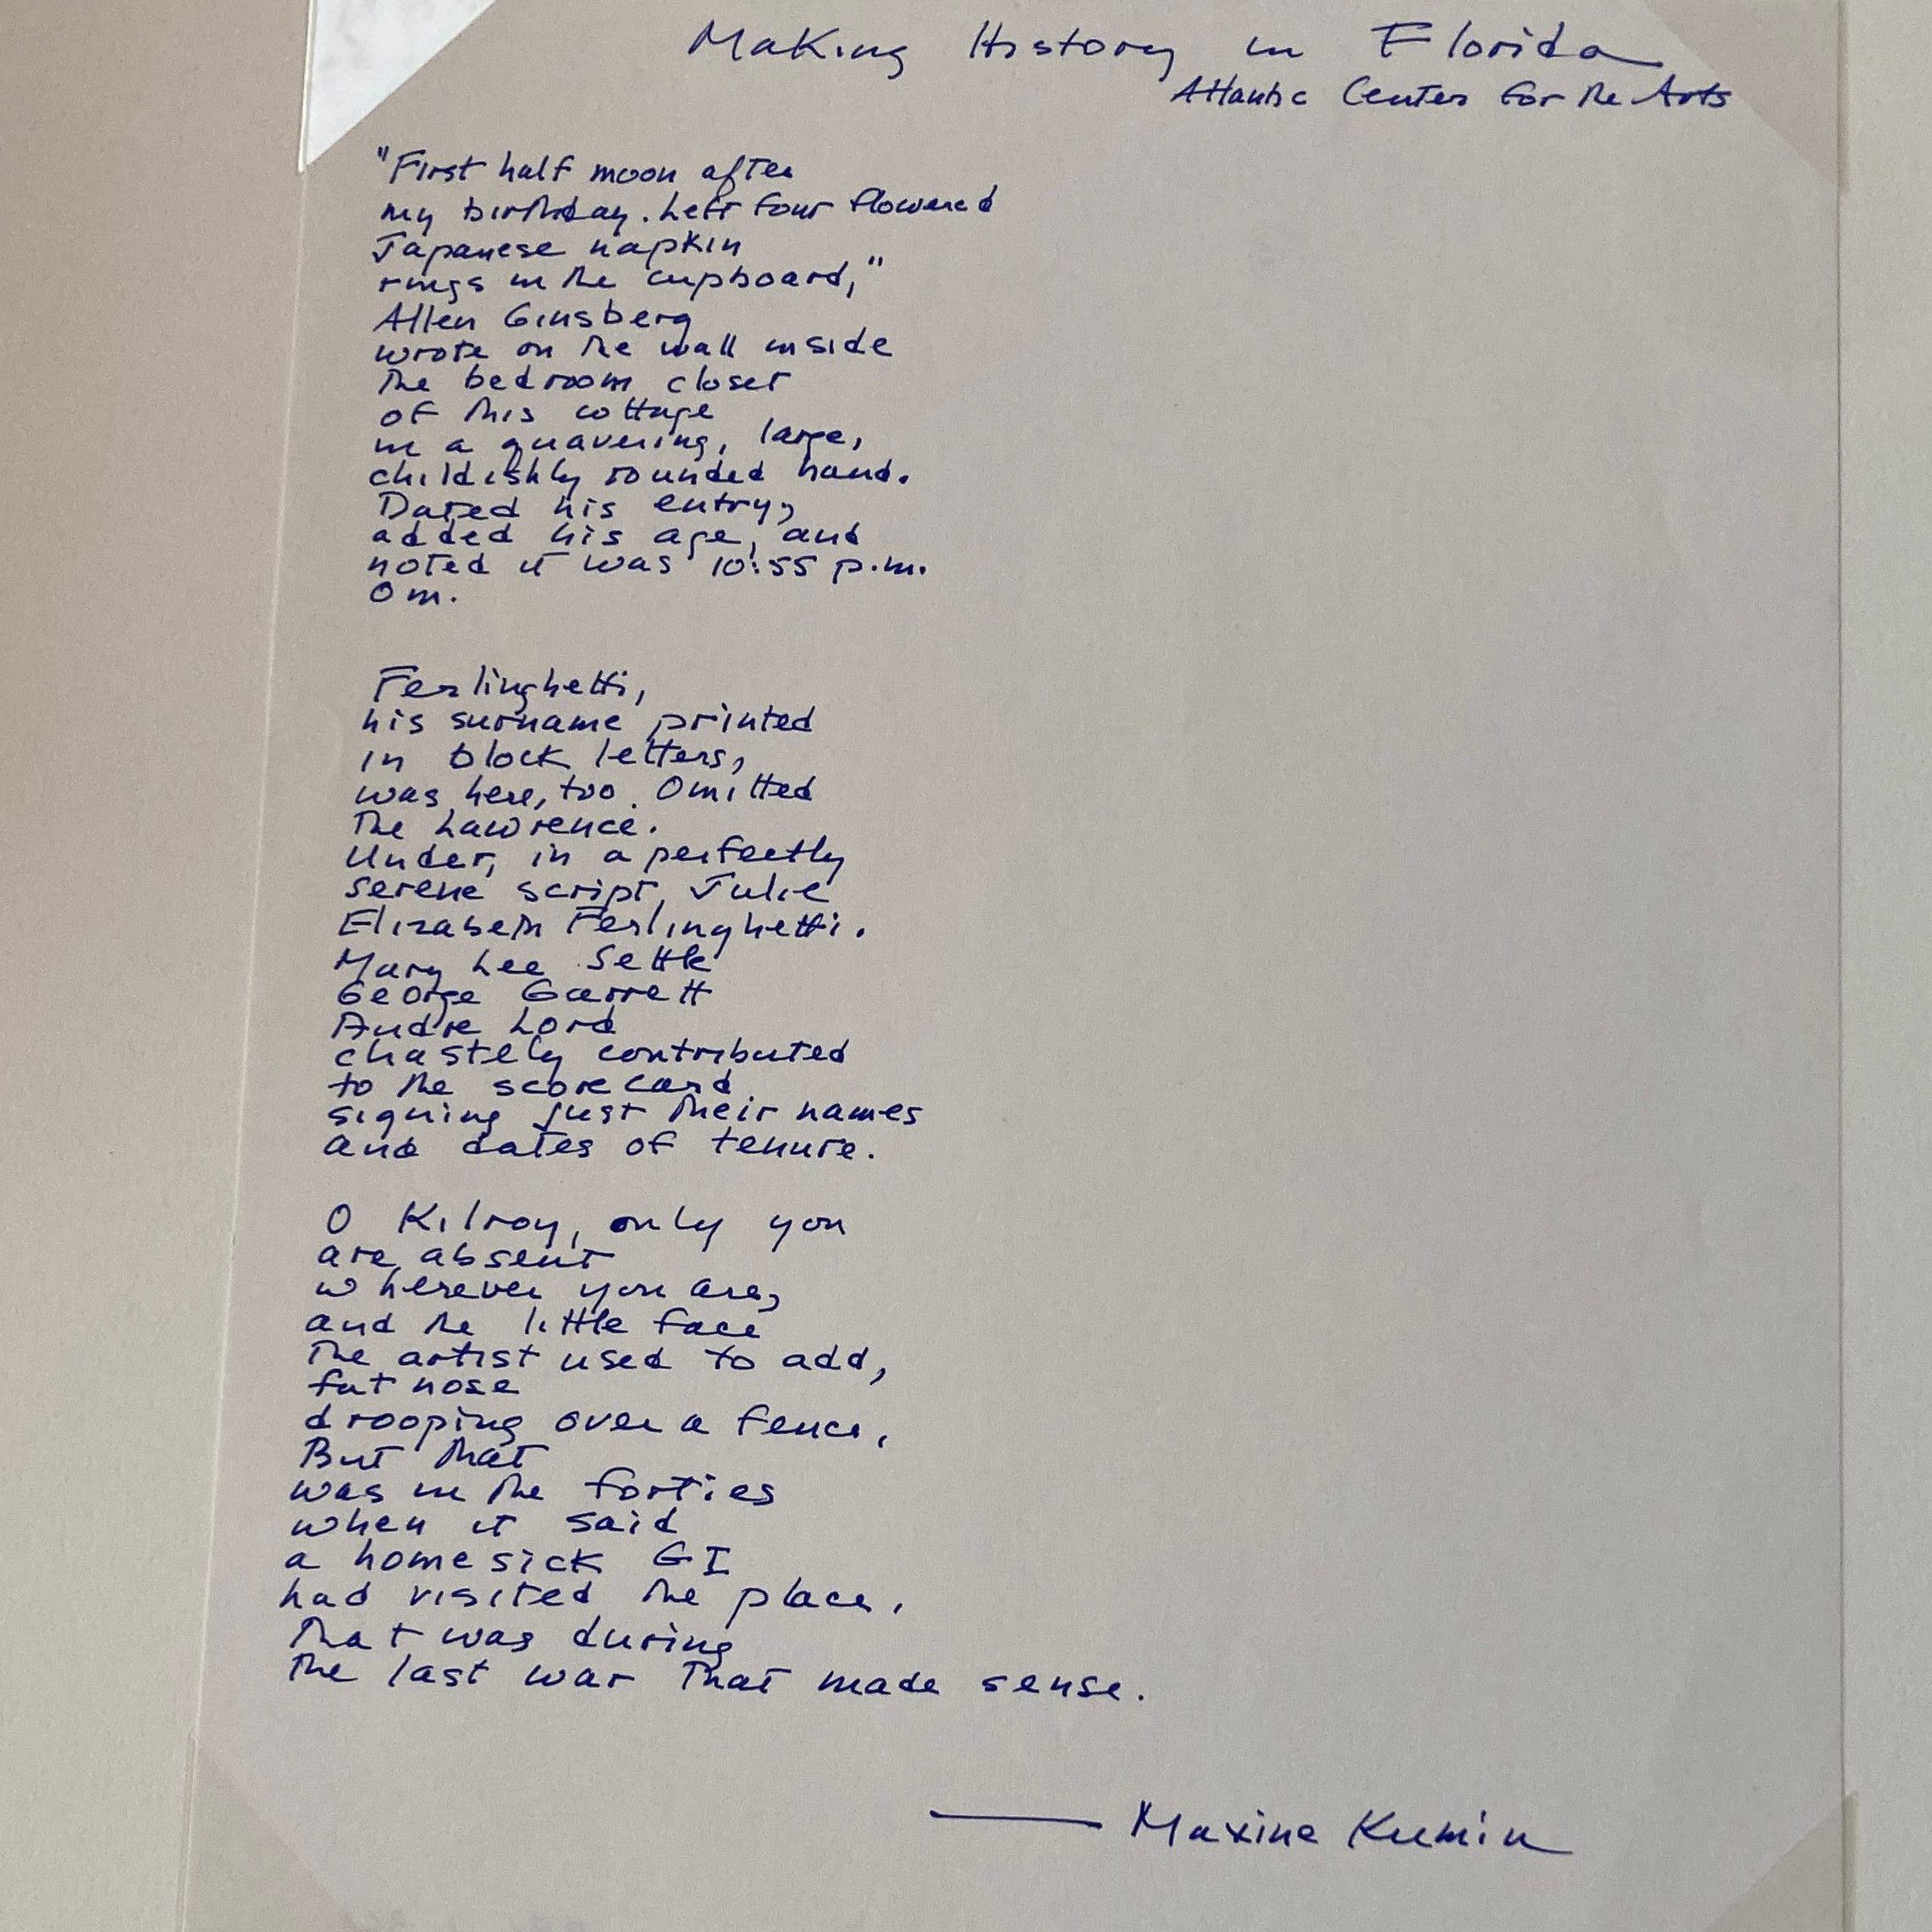 Making History in Florida
Atlantic Center for the Arts
"First half moon after
my birthday. Left four flowered
Japanese napkin
rings in the cupboard,"
Allen Ginsberg
wrote on the wall inside
the bedroom closet
of this cottage
in a quavering, large,
childishly rounded hand.
Dated his entry,
added his age, and
noted it was 10:55 p.m.
Om.
Ferlinghetti,
his surname printed
in block letters,
was here, too. Omitted
the Lawrence.
Under, in a perfectly
serene script, Julie
Elizabeth Ferlinghetti.
Mary Lee Settle
George Garrett
Audre Lord
chastely contributed
to the scorecard
signing just their names
and dates of tenure.
O Kilroy, only you
are absent
wherever you are,
and the little face
the artist used to add,
fat nose
drooping over a fence.
But that
was in the forties
when it said
a homesick GI
had visited the place.
That was during
the last war that made sense.
— Maxine Kumin